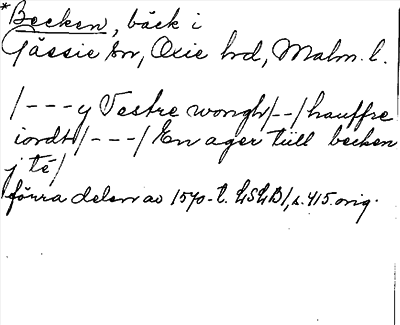 *Becken, bäck i
Gässie sn, Oxie hrd, Malm. l.
/---y Vestre wongh/--/hauffre
iordt/---/ En ager till becken
j té/
förra delen av 1570-t. LSLB1, s. 415 orig.